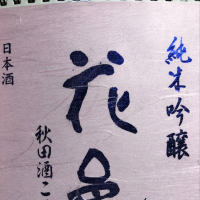 純米吟醸
花邑
秋田酒こ
日本酒